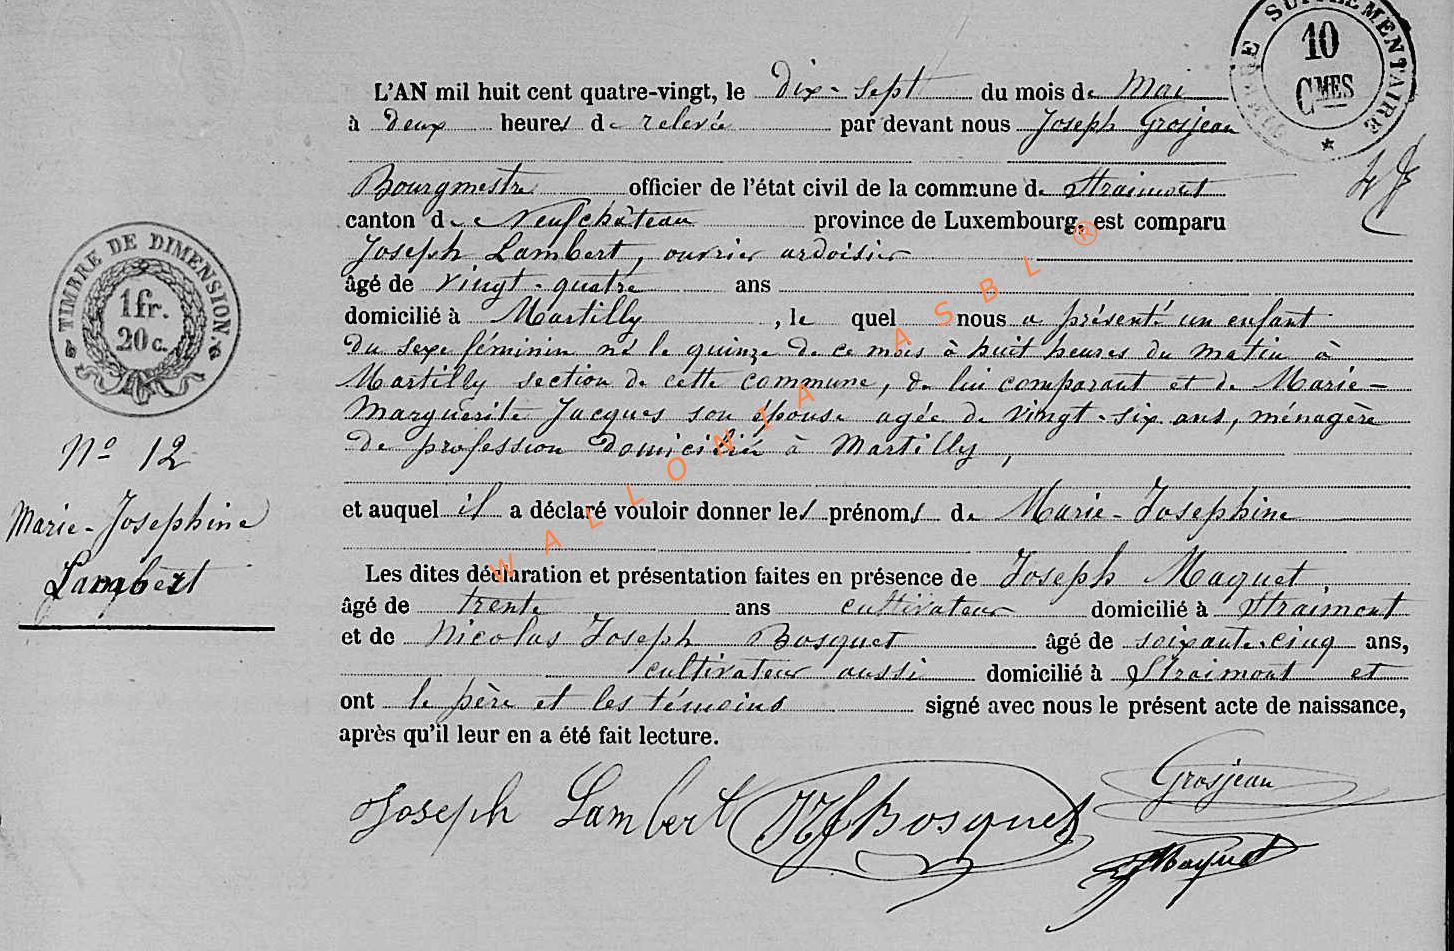 TIMBRE SUPPLÉMENTAIRE
10
CMES
L'AN mil huit cent quatre-vingt, le dix-sept du mois de Mai
à deux heures de relevée par devant nous Joseph Grosjean
Bourgmestre officier de l'état civil de la commune de Straimont
canton de Neufchâteau province de Luxembourg, est comparu
Joseph Lambert, ouvrier ardoisier
âgé de vingt-quatre ans
domicilié à Martilly, le quel nous a présenté un enfant
du sexe féminin né le quinze de ce mois à huit heures du matin à
Martilly section de cette commune, de lui comparant et de Marie-
Marguerite Jacques son épouse agée de vingt-six ans, ménagère
de profession domicilié à Martilly,
et auquel il a déclaré vouloir donner les prénoms de Marie-Josephine
Les dites déclaration et présentation faites en présence de Joseph Maquet
âgé de trente ans cultivateur domicilié à Straimont
et de Nicolas Joseph Bosquet âgé de soixante-cinq ans,
cultivateur aussi domicilié à Straimont et
ont le père et les témoins signé avec nous le présent acte de naissance,
après qu'il leur en a été fait lecture.
TIMBRE DE DIMENSION
1fr.
20c.
No 12
Marie-Josephine
Lambert
Joseph Lambert
NJBosquet
Grosjean
JMaquet
WALLONIA ASBL ®